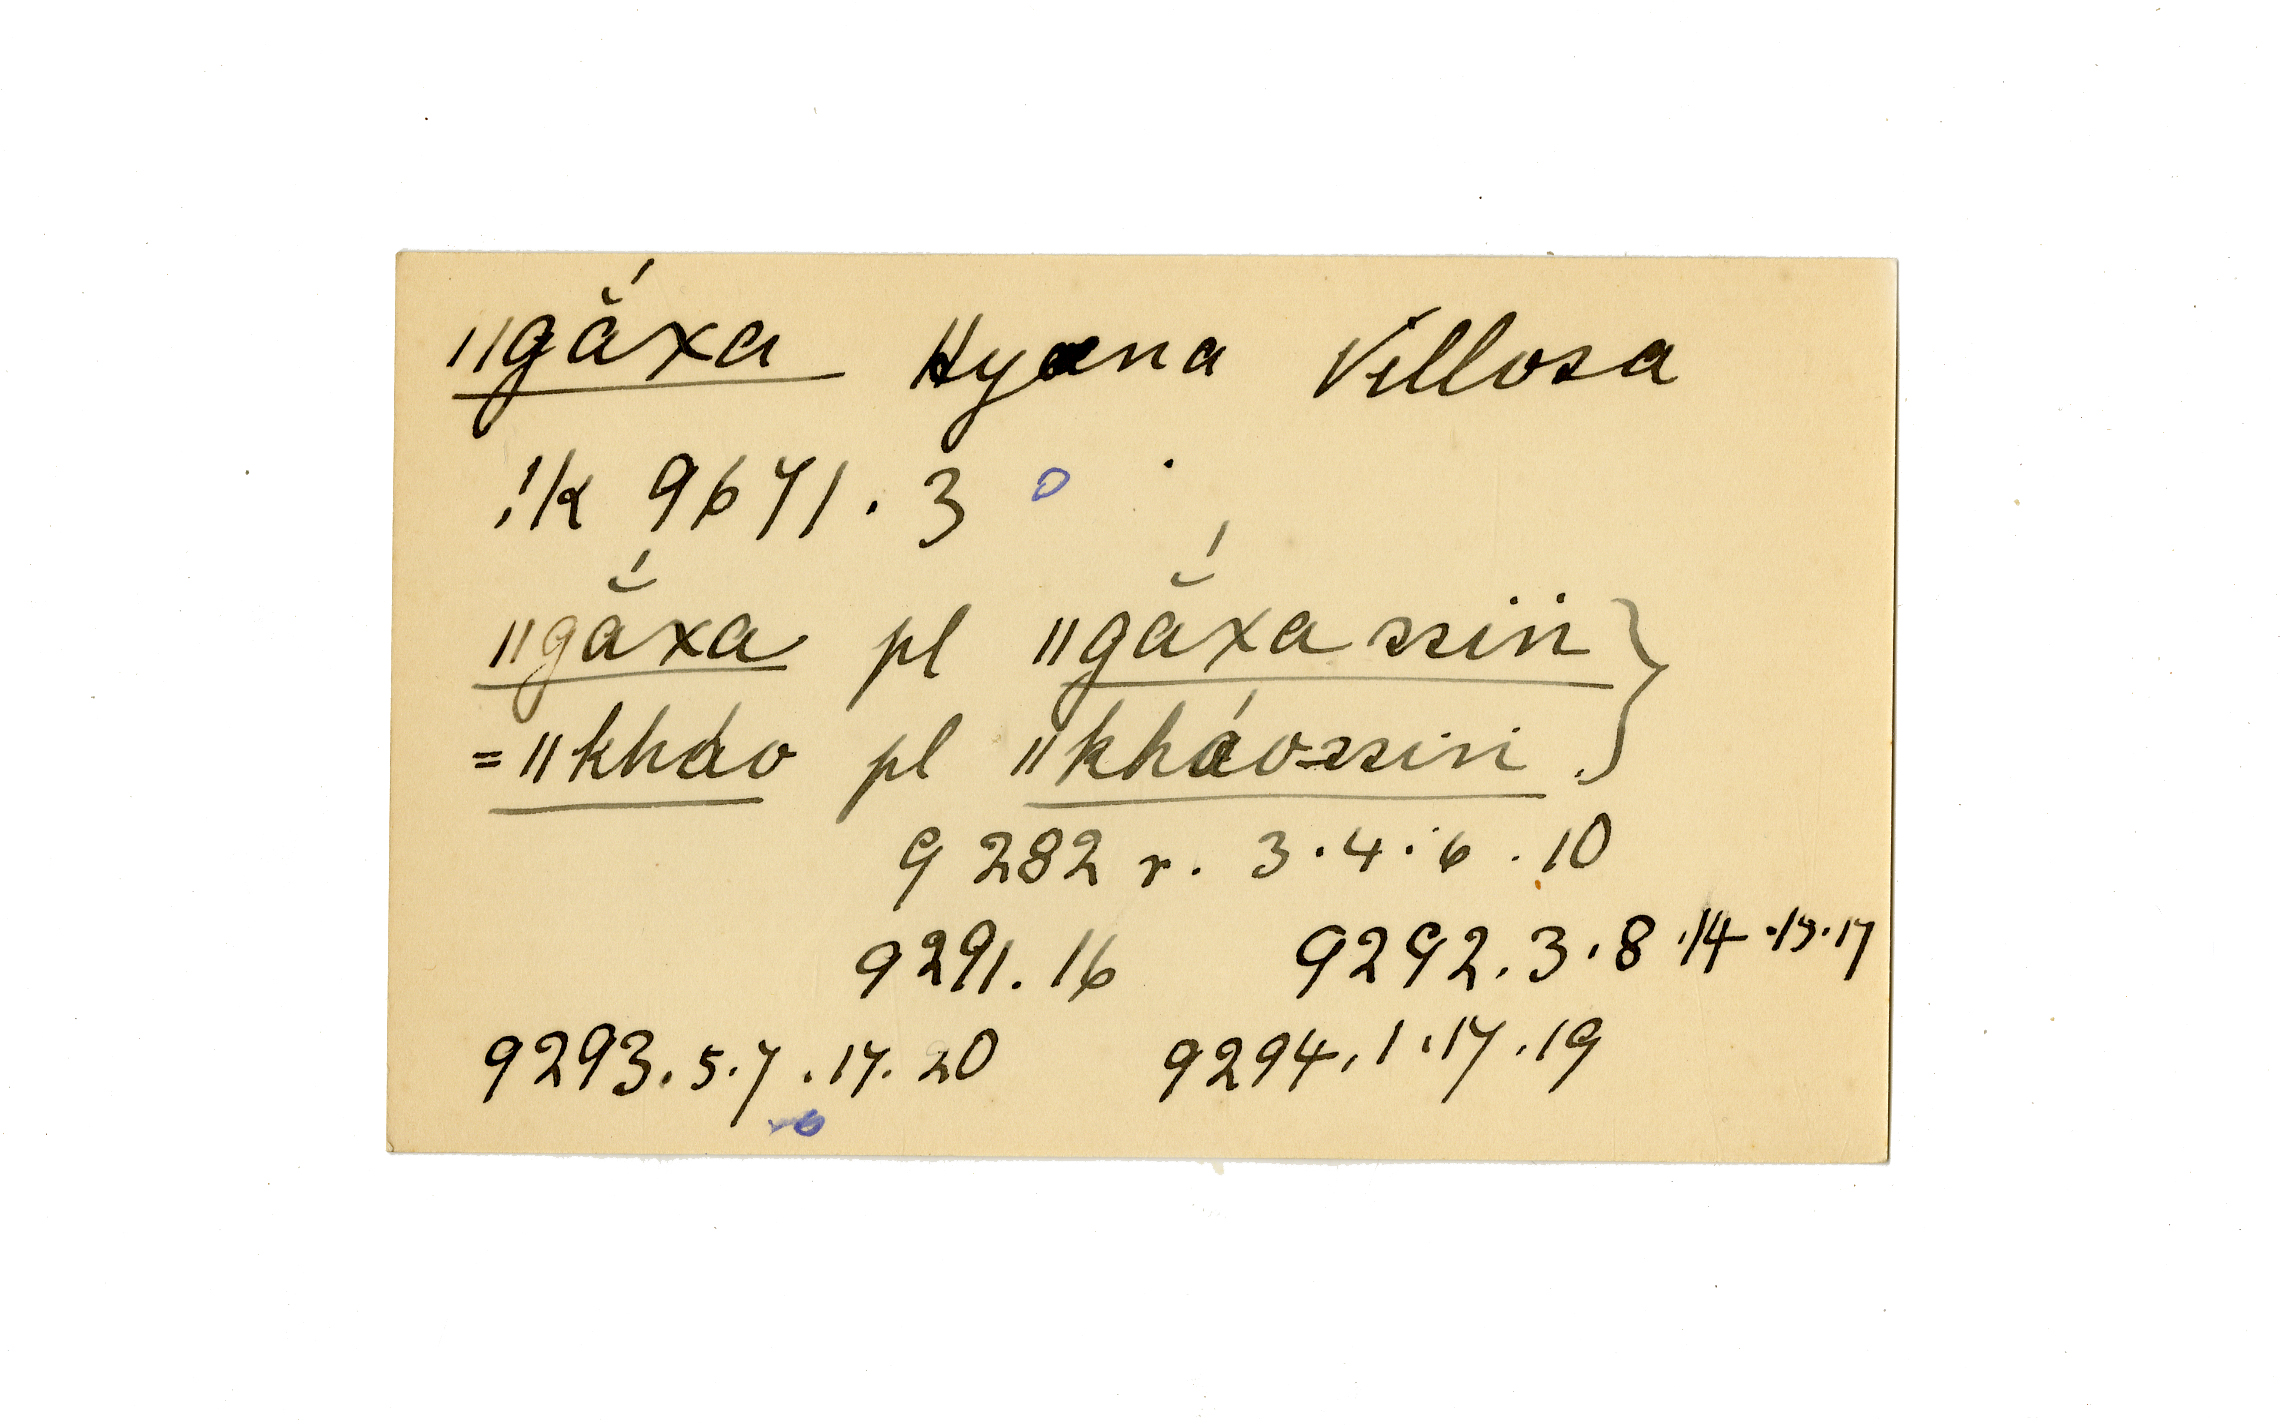 ǁgắxa Hyæna Villosa
!k 9671. 3 o
ǁgắxa pl ǁgắxa ssin }
= ǁkháo pl ǁkháo-ssin . }
9282 r. 3. 4. 6. 10
9291. 16 9292. 3. 8. 14. 15. 17
9293. 5. 7. 17. 20 9294. 1. 17. 19